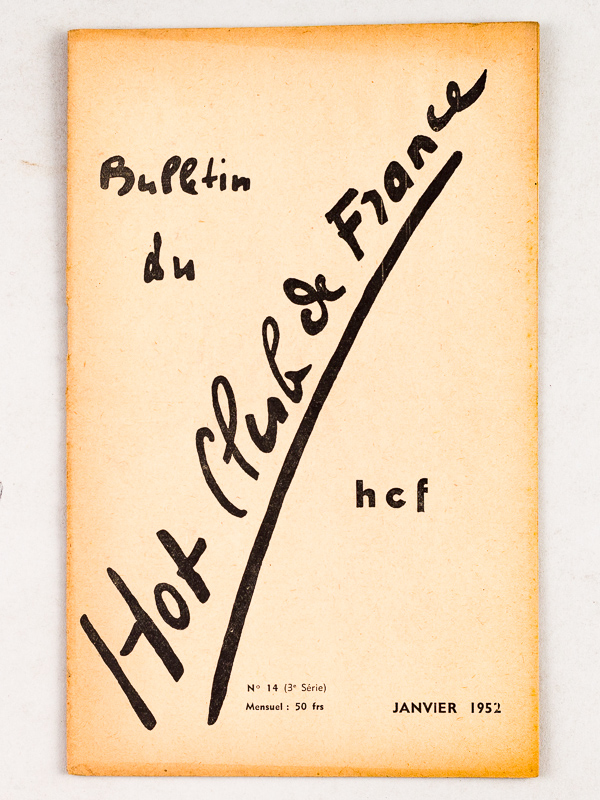 Bulletin
du
Hot Club de France
hcf
N° 14 (3e Série)
Mensuel : 50 frs
JANVIER 1952